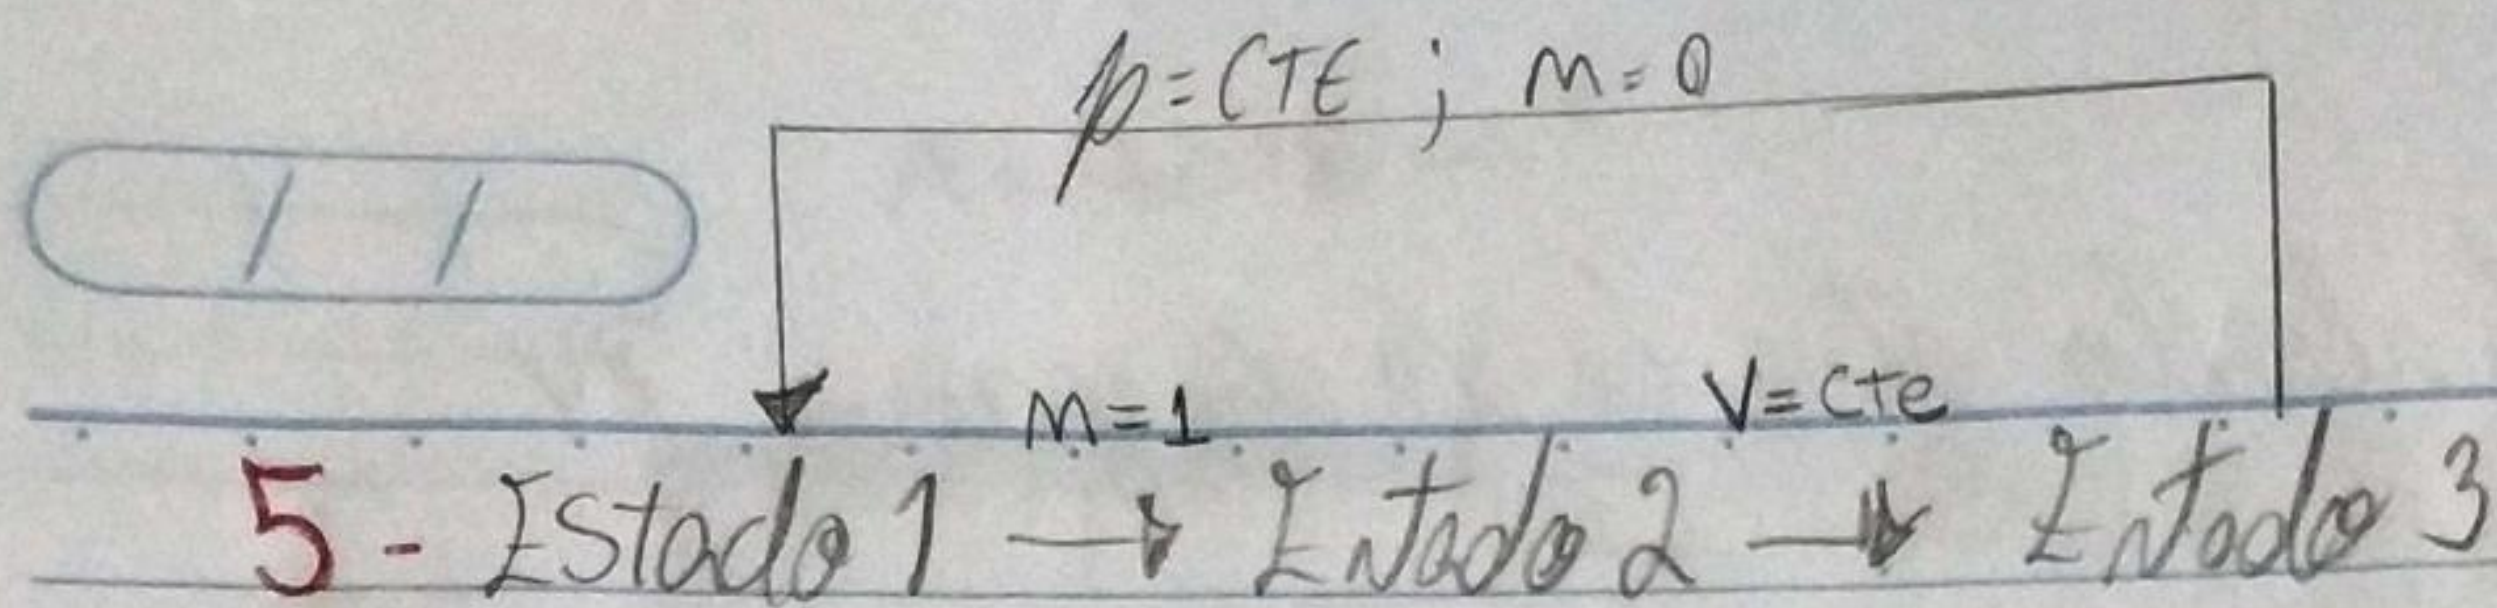 p=CTE ; m=0
/ /
m=1 V=cte
5- Estado 1 → Estado 2 → Estado 3